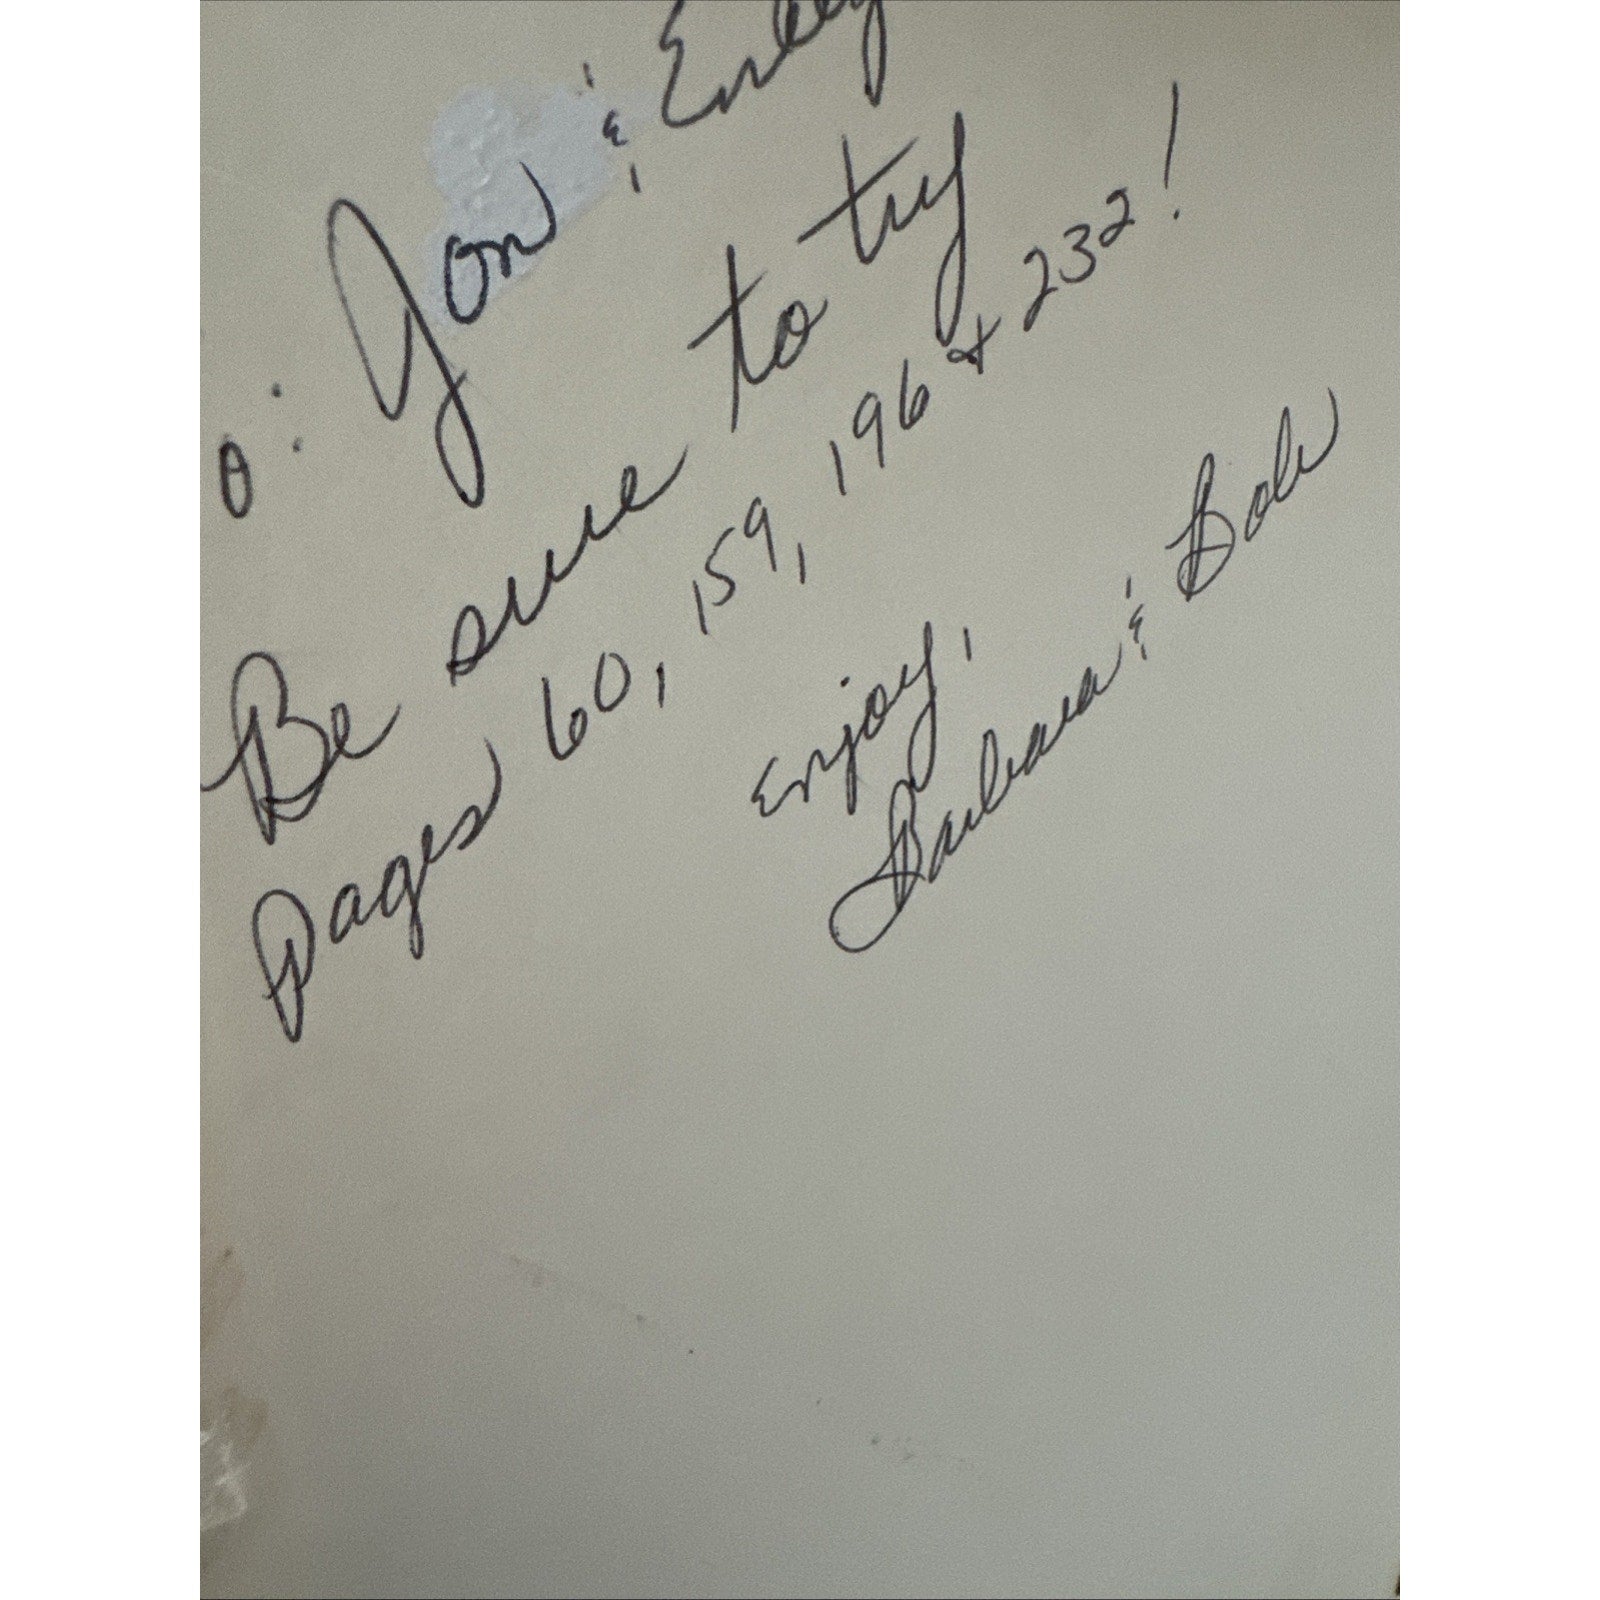 o: Jon &
Be sure to try
pages 60, 159, 196 & 232!
Enjoy,
Barbara & Bob